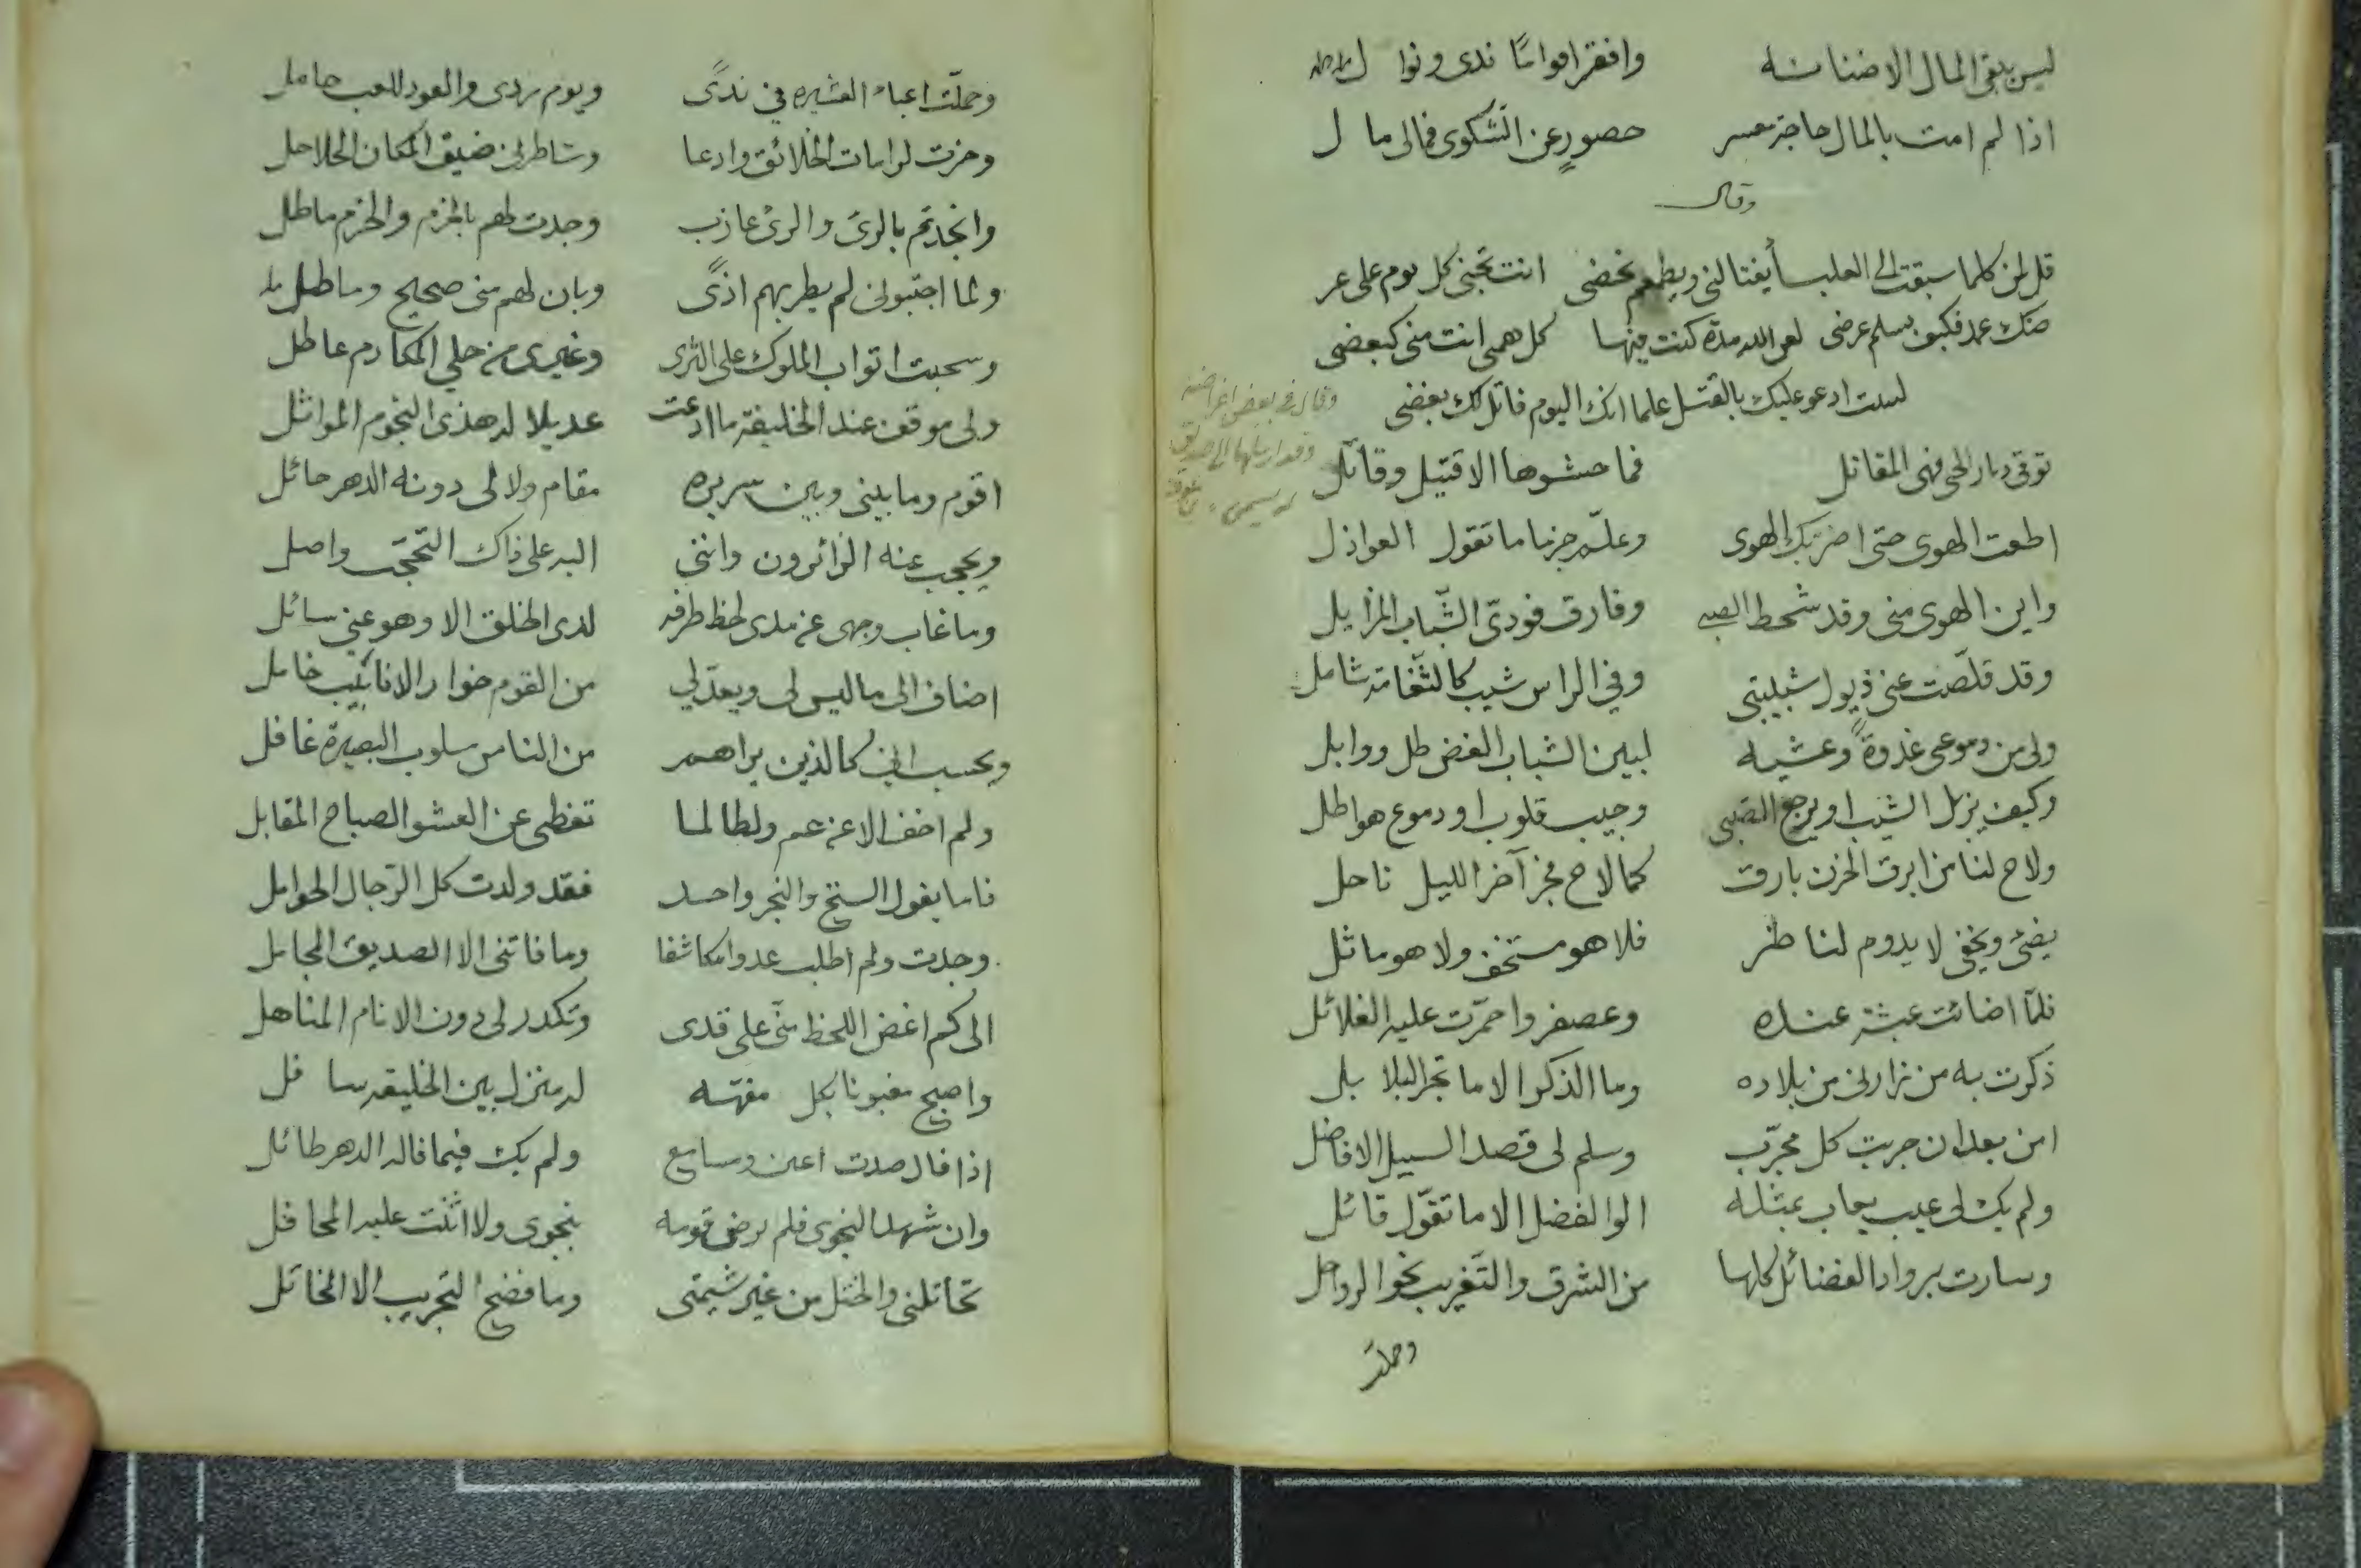 ليس يبقى المال الا ضنانته وافقر اقواما ندى ونوا ل
اذا لم امت بالمال حاجة معسر حصورٍ عن الشكوى فمالى ما ل
وقال
قل لمن كلما سبقت الى العليا أيغتالنى ويطعم نحضى انت تجنى كل يوم على عر
ضك عمد فكيف يسلم عرضى لعن الله مدة كنت فيها كل همى انت منى كبعضى
لست ادعو عليك بالقتل علما انك اليوم قاتل لك بغضى
توقى ديار الحى فهى المقاتل فما حشوها الا قتيل وقاتل
وقال فى بعض اغراضه
اطعت الهوى حتى اضر بك الهوى وعلم حزنا ما تقول العواذل
واين الهوى منى وقد شحط الصبى وفارق فودىّ الشّباب المزايل
وقد قلّصت عنى ذيول شبيبتى وفي الراس شيب كالثّغامة شامل
ولى من دموعى غدوةً وعشيه لبين الشباب الغض طل ووابل
وكيف يزيل الشيب او يرجع الصبى وجيب قلوب او دموع هواطل
ولاح لنا من ابرق الحزن بارق كما لاح فجر آخر الليل ناحل
يضئ ويخفى لا يدوم لناظر فلا هو مستخف ولا هو ماثل
فلمّا اضائت عبثة عنده وعصفر واحمرّت عليه الغلائل
ذكرت به من زارنى من بلاده وما الذكر الا ما تجر البلا بل
امن بعد ان جربت كل مجرّب وسلم لى قصد السبيل الافاضل
ولم يك لى عيب يعاب بمثله الوا الفضل الا ما تقوّل قائل
وسارت برواد الفضائل كلها من الشرق والتّغريب نحو الرواحل
وحملت
وحمّلت اعباء العشيره في ندىً ويوم ردى والعود للعب حامل
وحزت لراسات الخلائق وادعا وشاطرنى ضيق المكان الحلاحل
وانجدتم بالرىّ والرىّ عازب وجدت لهم بالحزم والحزم ماطل
ولما اجتبونى لم يطر بهم اذىً وبان لهم منى صحيح وما طل
وسحبت اثواب الملوك على الثرى وغيرى من حلي المكارم عاطل
ولى موقف عند الخليفة ما ادعت عديلا له هذى النجوم المواثل
اقوم وما بينى وبين سريره مقام ولا لى دونه الدهر حائل
ويحجب عنه الزائرون وانثنى اليه على ذاك التحجّب واصل
وما غاب وجهى عن مدى لحظ طرفه لدى الخلق الا وهو عنى سائل
اضاف الى ما ليس لى ويعدّلي من القوم خوار الانابيب خامل
ويحسب انى كالذين يراهم من الناس سلوب البصيرة غافل
ولم اخف الا عن عم ولطالما تغطى عن العشو الصباح المقابل
فاما يقول السنخ والنجر واحد فقد ولدت كل الرّجال الحوامل
وجدت ولم اطلب عدوا مكاشفا وما فاتنى الا الصديق المجامل
الى كم اغض اللحظ منّى على قذى وتكدر لى دون الانام المناهل
واصبح مغبونا بكل مفهّه له منزل بين الخليقه سا فل
اذا قال صدت اعين ومسامع ولم يك فيما قاله الدهر طائل
وان شهد النجوى فلم يرض قومه بنجوى ولا اثنت عليه المحافل
تخاتلنى والختل من غير شيمتى وما فضح التجريب الا المخاتل